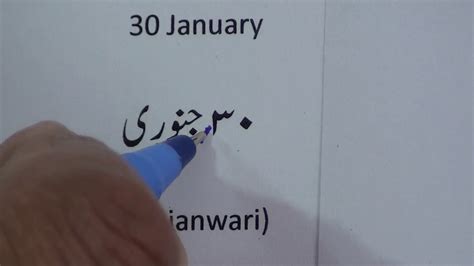 30 January
۳۰ جنوری
janwari)